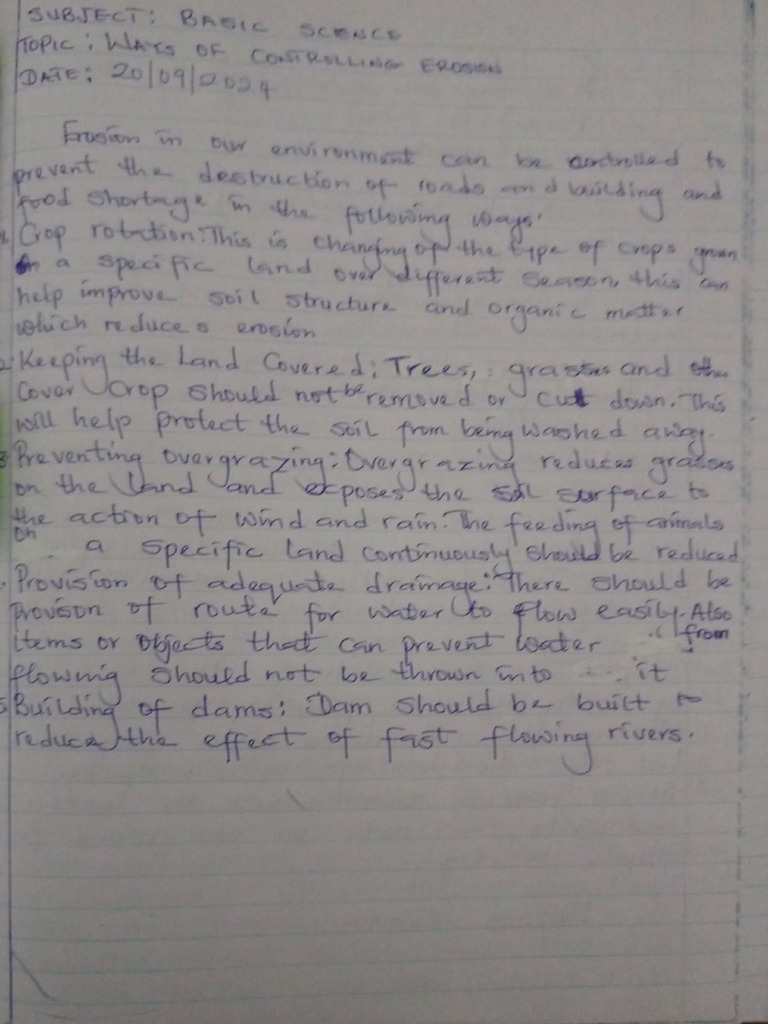 SUBJECT: BASIC SCIENCE
TOPIC: WAYS OF CONTROLLING EROSION
DATE: 20/09/2024
Erosion in our environment can be controlled to
prevent the destruction of roads and building and
food shortage in the following ways.
1. Crop rotation: This is changing of the type of crops grown
on a specific land over different season, this can
help improve soil structure and organic matter
which reduces erosion
2. Keeping the Land Covered: Trees, grasses and other
Cover Crop should not be removed or cut down. This
will help protect the soil from being washed away.
3 Preventing overgrazing: Overgrazing reduces grasses
on the land and exposes the soil surface to
the action of wind and rain. The feeding of animals
on a specific land continuously should be reduced
. Provision of adequate drainage: There should be
provison of route for water to flow easily. Also
items or objects that can prevent water from
flowing should not be thrown into it
5 Building of dams: Dam should be built to
reduce the effect of fast flowing rivers.